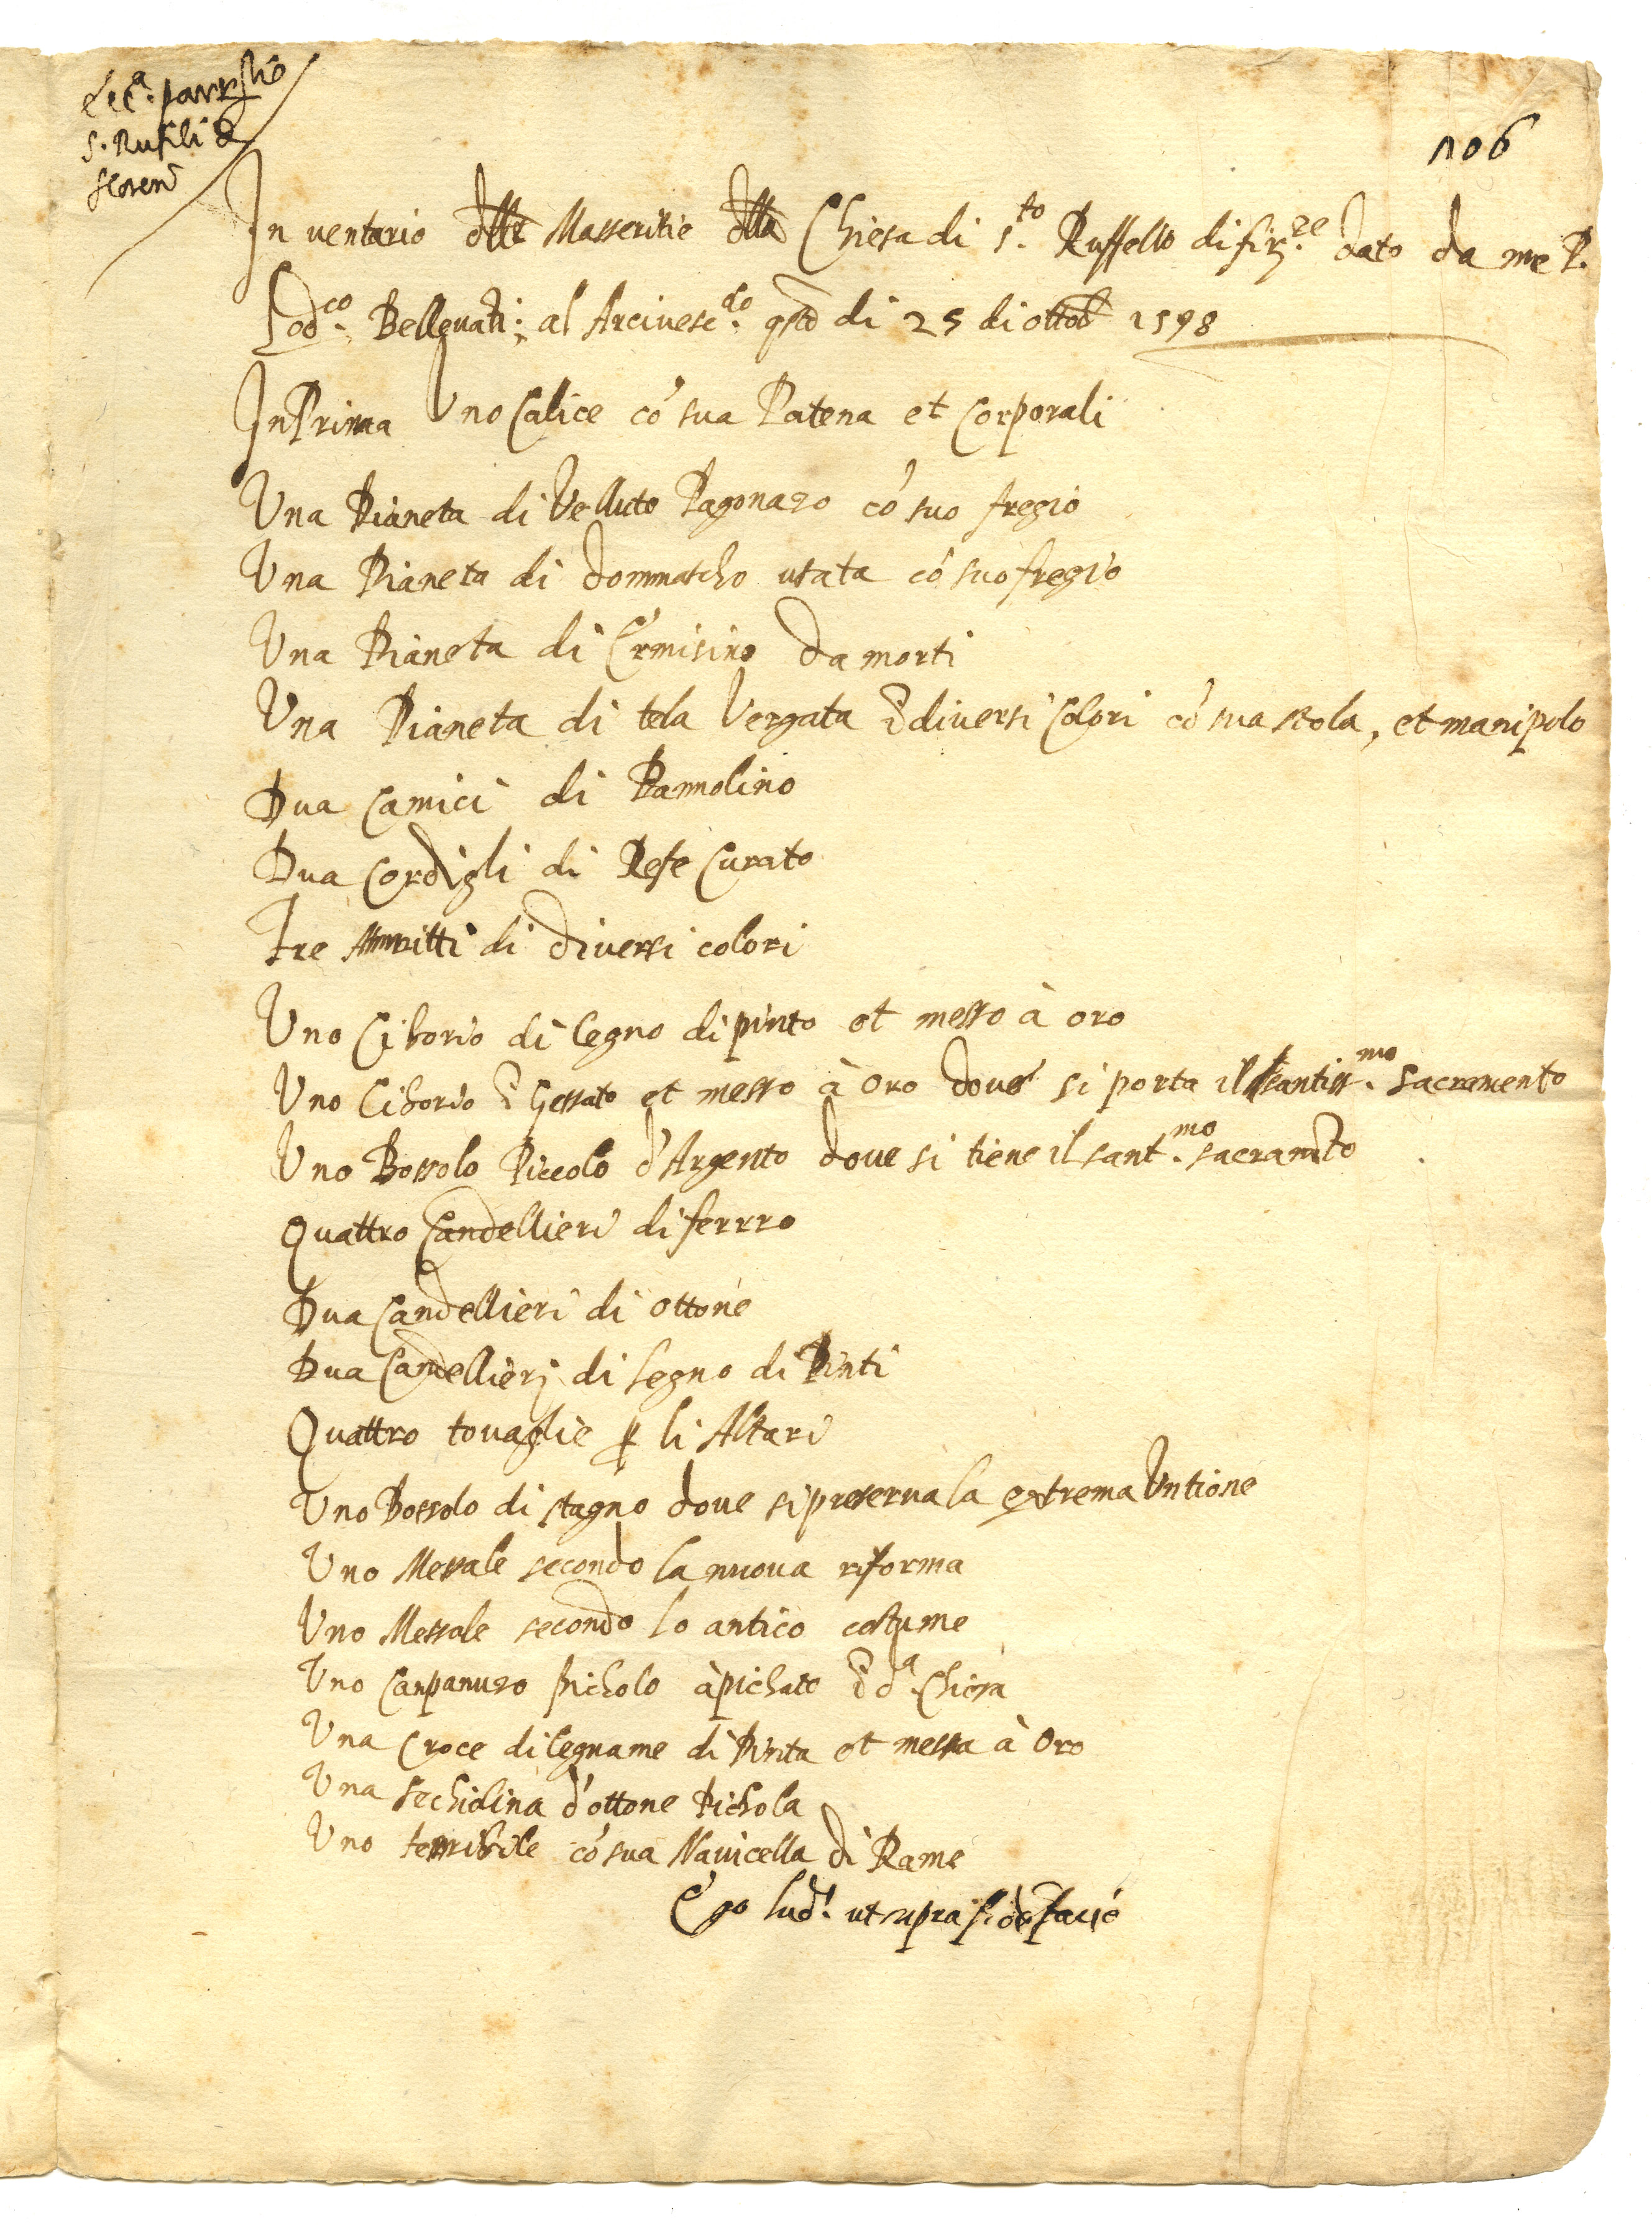 S. Rufili
106
Inventario dlle Masseritie dlla Chiesa di s.to Ruffello di firze dato da me P.
Lodco. Belleuati; al Arciuesc.do qsto di 25 di ottob 1598
In Prima Uno Calice cō sua Patena et Corporali
Una Pianeta di Velluto Pagonazo cō suo fregio
Una Pianeta di dommascho usata cō suo fregio
Una Pianeta di Ermisino da morti
Una Pianeta di tela Vergata ī diuersi Colori cō sua stola, et manipolo
Dua Camici di Pannolino
Dua Cordigli di Refe Curato
Tre Ammitti di diuersi colori
Uno Ciborio di legno dipinto et messo à oro
Uno Ciborio īgessato et messo à oro doue si porta il santiss.mo sacramento
Uno Bossolo Piccolo d'Argento doue si tiene il sant.mo sacramto
Quattro Candellieri di ferrro
Dua Candellieri di ottone
Dua Candellieri di legno di Pinti
Quattro touaglie ꝑ li Altari
Uno Bossolo di stagno doue si preserua la extrema Untione
Uno Messale secondo la nuoua riforma
Uno Messale secondo lo antico costume
Uno Canpanuzo picholo àpichato ī d.a Chiesa
Una Croce di legname di Pinta et messa à Oro
Una sechiolina d'ottone Pichola
Uno terribile cō sua Nauicella di Rame
Ego Lud. ut supra fidē facio